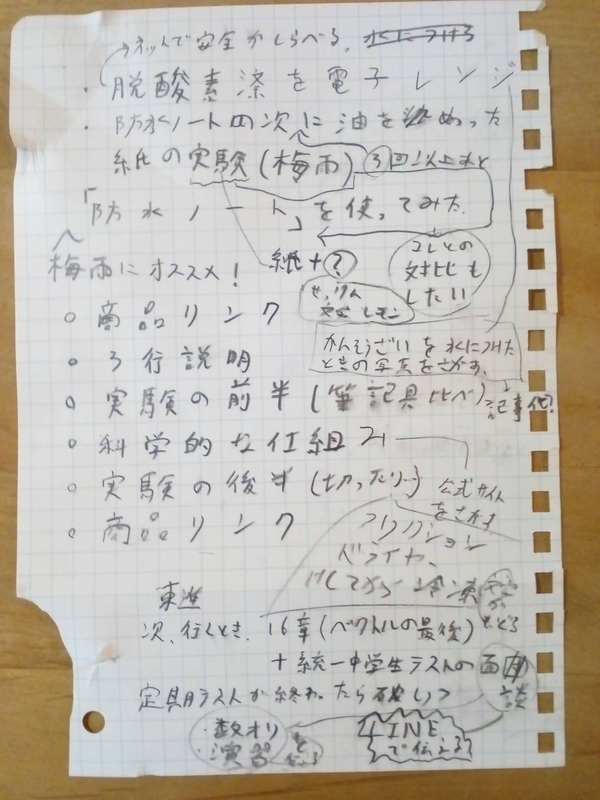 ネットで安全かしらべる。水につける
・脱酸素済を電子レンジ
・防水ノートの次に油を染めった
紙の実験(梅雨) 3回以上みと
「防水ノート」を使ってみた。
梅雨にオススメ!
紙+?
コレとの
対比も
したい
せっけん
レモン
○ 商品リンク
かんそうざいを水につけた
ときの写真をさがす。
○ 3行説明
○ 実験の前半(筆記具比べ)
記事化?
○ 科学的な仕組み
○ 実験の後半(切ったり…)
公式サイト
をさがす
○ 商品リンク
フリクション
ドライヤー、
けしてから冷凍
東進
次、行くとき、16章(ベクトルの最後)
+統一中学生テストの面談
定期テストが終わったら
・数オリ
・演習
LINE
で伝える